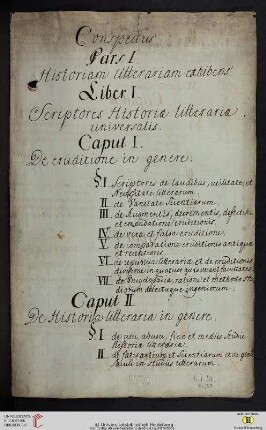 Conspectus
Pars I.
Historiam litterariam exhibens
Liber I.
Scriptores Historiæ litterariæ
universalis.
Caput I.
De eruditione in genere.
§. I. Scriptores de laudibus, utilitate, et
Necessitate litterarum.
II. de Vanitate Scientiarum.
III. de Augmentis, decrementis, defectibus
et emendatione eruditionis.
IV. de vera et falsa eruditione.
V. de comparatione eruditionis antiquæ
et recentioris.
VI. de republica litteraria et de eruditionis
VII. de ratione et methodo
ingeniorum.
Caput II.
De Historia litteraria in genere.
§. I de usu, abusu, fine et mediis studii
Historiæ literariæ.
II. de et
in studiis litterarum.
UNIVERSITÄTS-
BIBLIOTHEK
HEIDELBERG
© Universitätsbibliothek Heidelberg